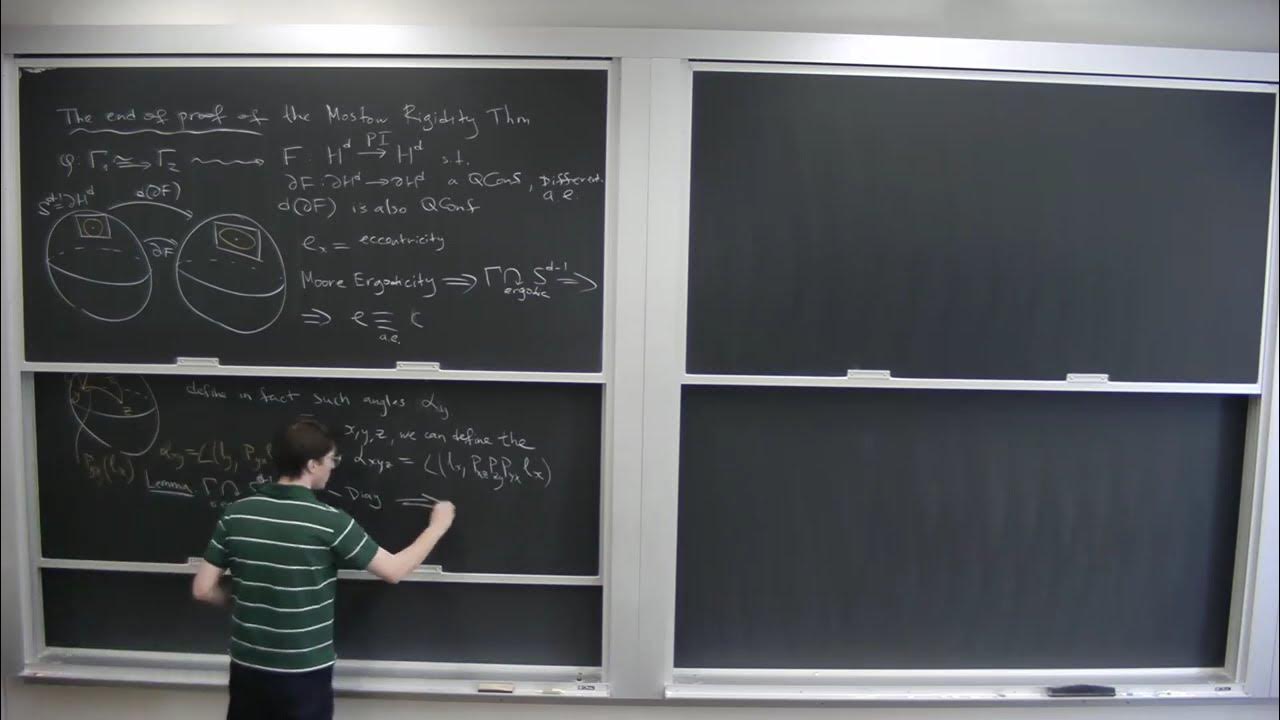 The end of proof of the Mostow Rigidity Thm
φ: Γ₁ ≅→ Γ₂ ⟿ F: H^d →^{PI} H^d s.t.
∂F: ∂H^d → ∂H^d a QConf, Different. a.e.
d(∂F) is also QConf
S^{d-1} = ∂H^d
d(∂F)
∂F
e_x = eccentricity
Moore Ergodicity ⟹ Γ ↷ S^{d-1} ⟹
ergodic
⟹ e ≡ c
a.e.
define in fact such angles α_{xy}
x, y, z, we can define the
α_{xy} = ∠(l_y, P_{yx}
α_{xyz} = ∠(l_x, P_{xz} P_{zy} P_{yx} l_x)
P_{yx}(l_x)
Lemma Γ ↷ S^{d-1} \ Diag ⟹